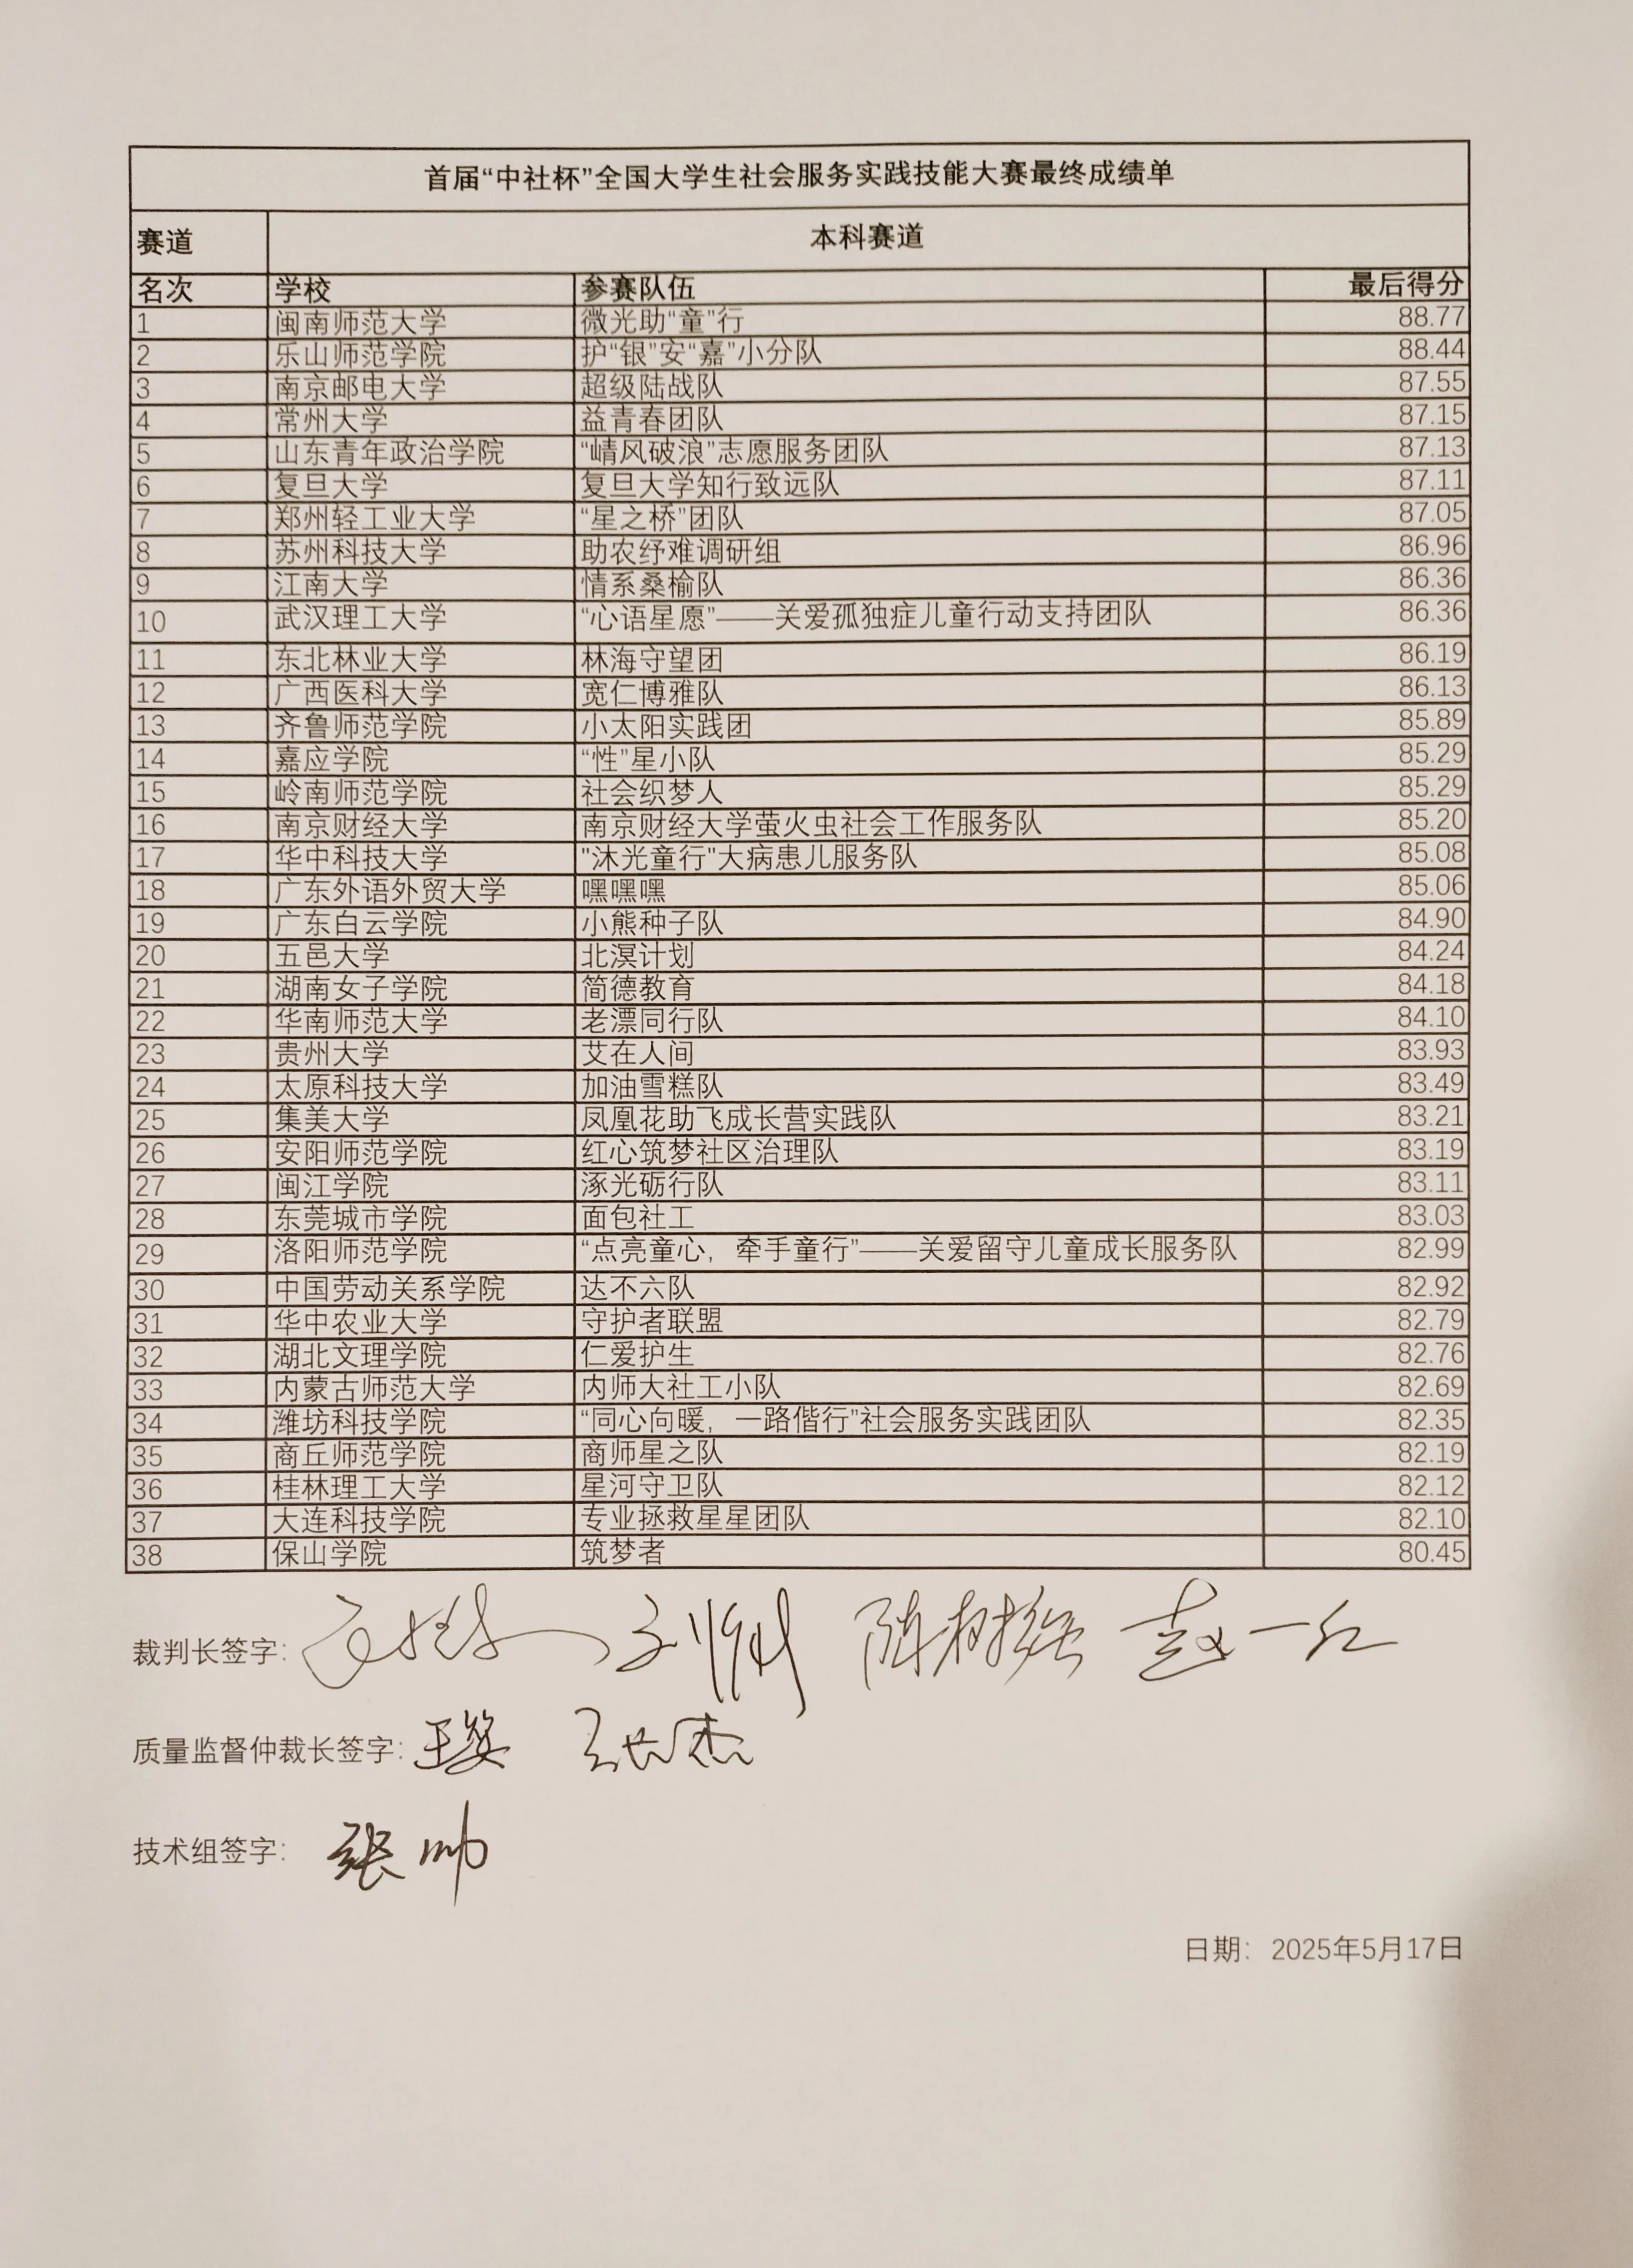 首届“中社杯”全国大学生社会服务实践技能大赛最终成绩单
赛道 本科赛道
名次 学校 参赛队伍 最后得分
1 闽南师范大学 微光助“童”行 88.77
2 乐山师范学院 护“银”安“嘉”小分队 88.44
3 南京邮电大学 超级陆战队 87.55
4 常州大学 益青春团队 87.15
5 山东青年政治学院 “崝风破浪”志愿服务团队 87.13
6 复旦大学 复旦大学知行致远队 87.11
7 郑州轻工业大学 “星之桥”团队 87.05
8 苏州科技大学 助农纾难调研组 86.96
9 江南大学 情系桑榆队 86.36
10 武汉理工大学 “心语星愿”——关爱孤独症儿童行动支持团队 86.36
11 东北林业大学 林海守望团 86.19
12 广西医科大学 宽仁博雅队 86.13
13 齐鲁师范学院 小太阳实践团 85.89
14 嘉应学院 “性”星小队 85.29
15 岭南师范学院 社会织梦人 85.29
16 南京财经大学 南京财经大学萤火虫社会工作服务队 85.20
17 华中科技大学 "沐光童行"大病患儿服务队 85.08
18 广东外语外贸大学 嘿嘿嘿 85.06
19 广东白云学院 小熊种子队 84.90
20 五邑大学 北溟计划 84.24
21 湖南女子学院 简德教育 84.18
22 华南师范大学 老漂同行队 84.10
23 贵州大学 艾在人间 83.93
24 太原科技大学 加油雪糕队 83.49
25 集美大学 凤凰花助飞成长营实践队 83.21
26 安阳师范学院 红心筑梦社区治理队 83.19
27 闽江学院 涿光砺行队 83.11
28 东莞城市学院 面包社工 83.03
29 洛阳师范学院 “点亮童心，牵手童行”——关爱留守儿童成长服务队 82.99
30 中国劳动关系学院 达不六队 82.92
31 华中农业大学 守护者联盟 82.79
32 湖北文理学院 仁爱护生 82.76
33 内蒙古师范大学 内师大社工小队 82.69
34 潍坊科技学院 “同心向暖，一路偕行”社会服务实践团队 82.35
35 商丘师范学院 商师星之队 82.19
36 桂林理工大学 星河守卫队 82.12
37 大连科技学院 专业拯救星星团队 82.10
38 保山学院 筑梦者 80.45
裁判长签字： 陈树强 赵一红
质量监督仲裁长签字：
技术组签字： 张帅
日期：2025年5月17日